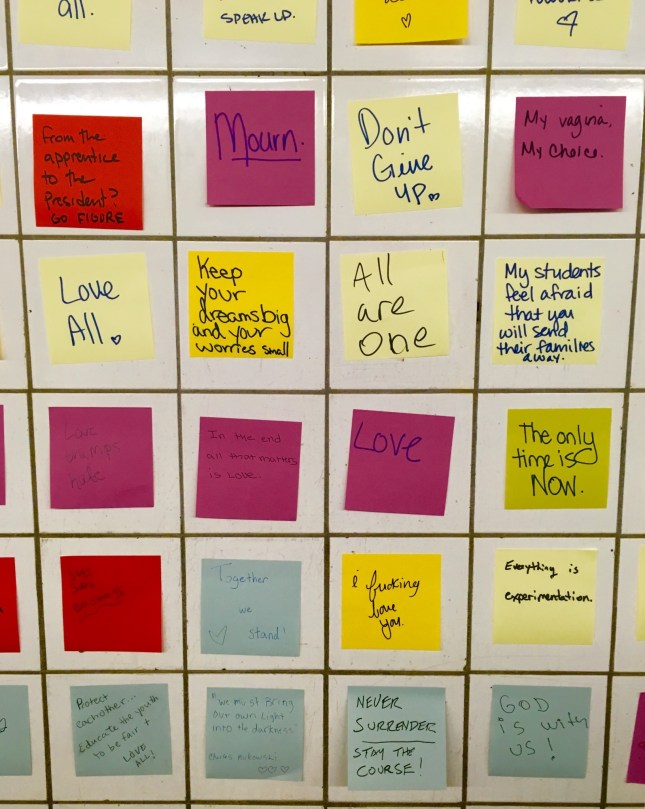 all.
SPEAK UP.
From the
apprentice
to the
President?
GO FIGURE
Mourn.
Don't
Give
up
My vagina,
My choice.
Love
All.
Keep
your
dreams big
and your
worries small
All
are
one
My students
feel afraid
that you
will send
their families
away.
Love
trumps
hate
In the end
all that matters
is Love.
Love
The only
time is
NOW.
Together
we
stand!
i fucking
love
you.
Everything is
experimentation.
Protect
eachother...
Educate the youth
to be fair +
LOVE
ALL!
"We must Bring
our own Light
into the darkness"
Charles Bukowski
NEVER
SURRENDER
STAY THE
COURSE!
GOD
is with
us!